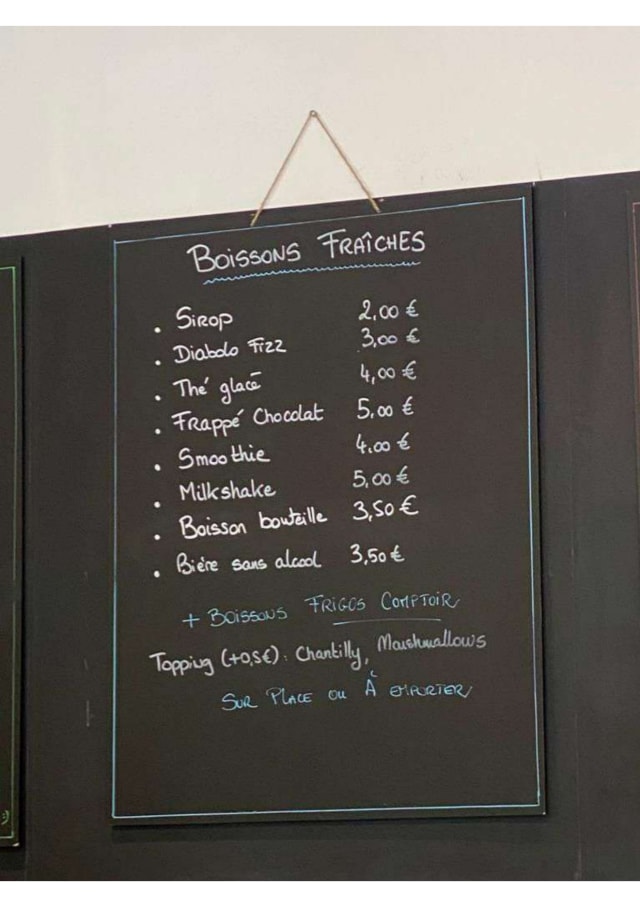 Boissons Fraîches
• Sirop 2,00 €
• Diabolo Fizz 3,00 €
• Thé glacé 4,00 €
• Frappé Chocolat 5,00 €
• Smoothie 4,00 €
• Milkshake 5,00 €
• Boisson bouteille 3,50 €
• Bière sans alcool 3,50 €
+ Boissons Frigos Comptoir
Topping (+0,5€) : Chantilly, Marshmallows
Sur Place ou À emporter